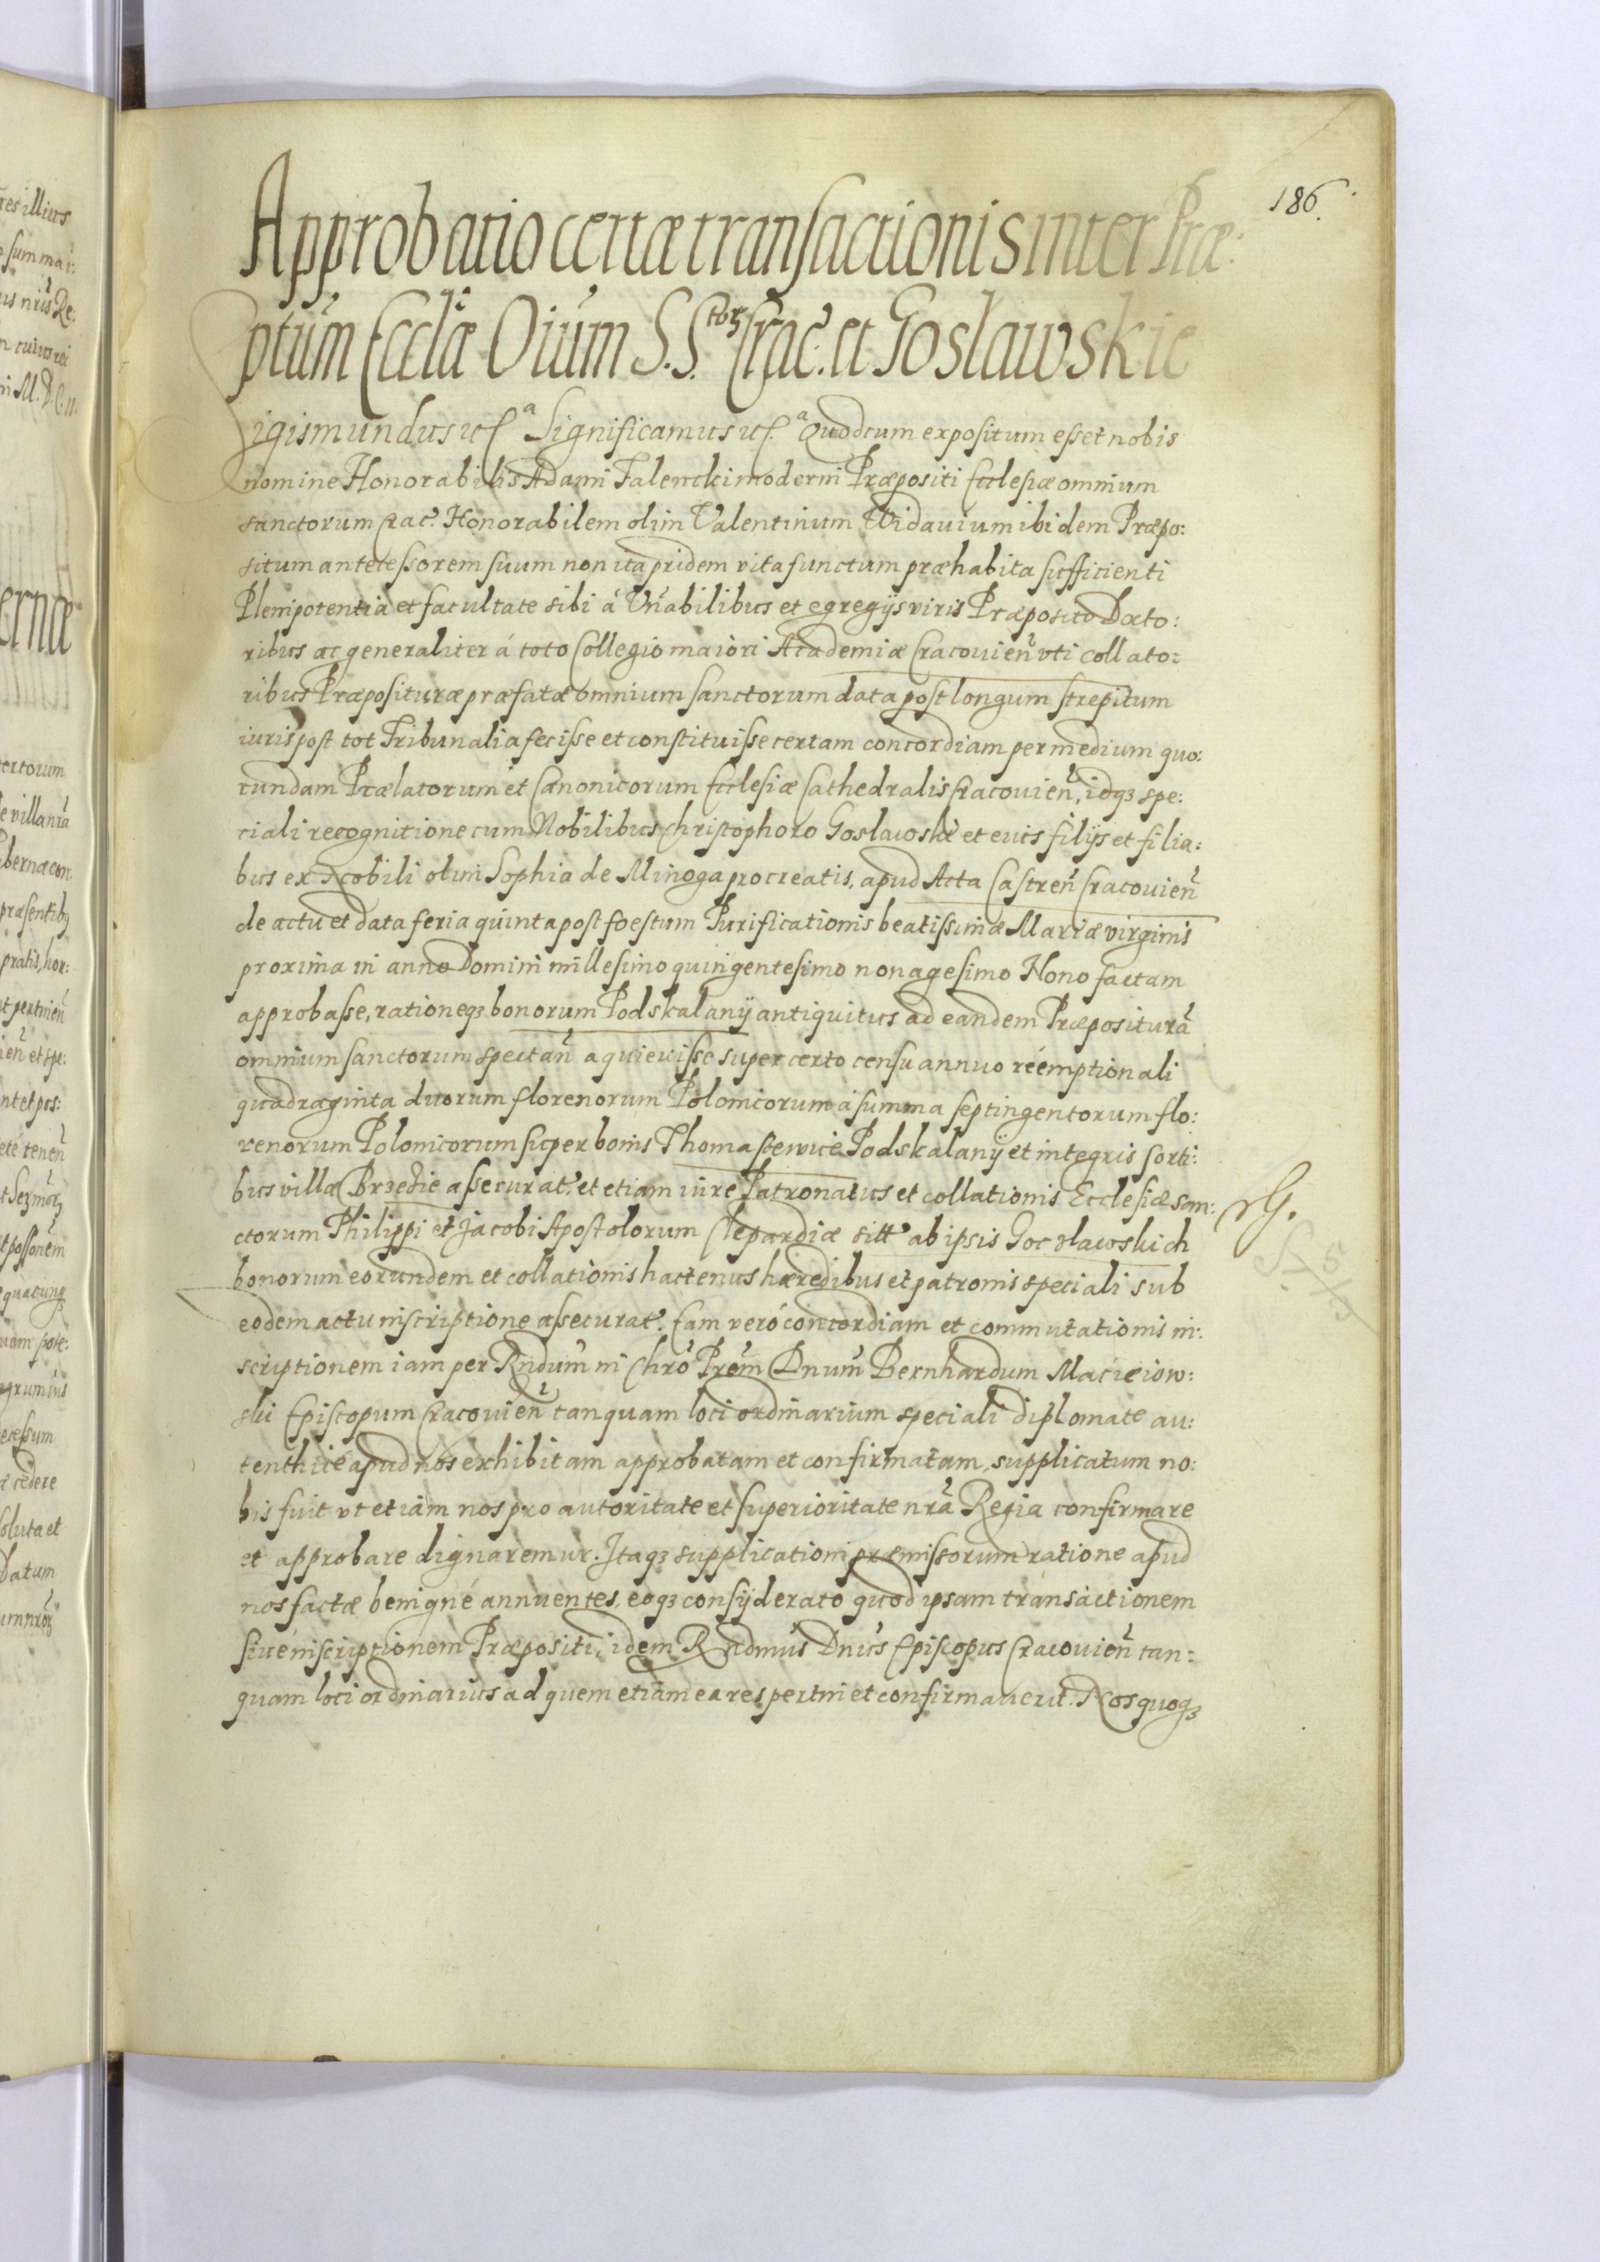 186.
Approbatio certæ transactionis inter Præ:
ptum Ecclæ Oium S.S.torz Crac. et Goslawskie
Sigismundus etc.a Significamus etc.a Quod cum expositum esset nobis
nomine Honorabilis Adami Falencki moderni Præpositi Ecclesiæ omnium
sanctorum Crac. Honorabilem olim Valentinum Widauium ibidem Præpo:
situm antecessorem suum non ita pridem vita functum præhabita sufficienti
Plenipotentia et facultate sibi á Vnabilibus et egregijs viris Præposito Docto:
ribus ac generaliter á toto Collegio maiori Academiæ Cracouien vti collato:
ribus Præpositurae præfatæ omnium sanctorum data post longum strepitum
iuris post tot Tribunalia fecisse et constituisse certam concordiam per medium quo:
rundam Prælatorum et Canonicorum Ecclesiæ Cathedralis Cracouien, idqz spe:
ciali recognitione cum Nobilibus Christophoro Goslawski et euis filijs et filia:
bus ex Nobili olim Sophia de Minoga procreatis, apud Acta Castren Cracouien
de actu et data feria quinta post foestum Purificationis beatissimæ Mariæ virginis
proxima in anno Domini millesimo quingentesimo nonagesimo Nono factam
approbasse, rationeqz bonorum Podskalany antiquitus ad eandem Præpositurā
omnium sanctorum spectan aquieuisse super certo censu annuo réemptionali
quadraginta duorum florenorum Polonicorum á summa septingentorum flo:
renorum Polonicorum super bonis Thomaszewice Podskalanÿ et integris sorti:
bus villæ Brzedie assecurat. et etiam iure Patronatus et collationis Ecclesiæ san:
ctorum Philippi et Jacobi Apostolorum Clepardiæ sitt. ab ipsis Goczlawskich
bonorum eorundem et collationis hactenus hæredibus et patronis speciali sub
eodem actu inscriptione assecurat. Eam veró concordiam et commutationis in:
scriptionem iam per Rndum in Chro Prem Dnum Bernhardum Macieiow:
ski Episcopum Cracouien tanquam loci ordinarium speciali diplomate au:
tenthice apud nos exhibitam approbatam et confirmatam, supplicatum no:
bis fuit vt etiam nos pro autoritate et superioritate nrā Regia confirmare
et approbare dignaremur. Itaqz supplicationi præmissorum ratione apud
nos factæ benigné annuentes, eoqz consÿderato quod ipsam transactionem
siue inscriptionem Præpositi, idem Rndmus Dnus Episcopus Cracouien tan:
quam loci ordinarius ad quem etiam ea res pertinet confirmauerit. Nos quoqz